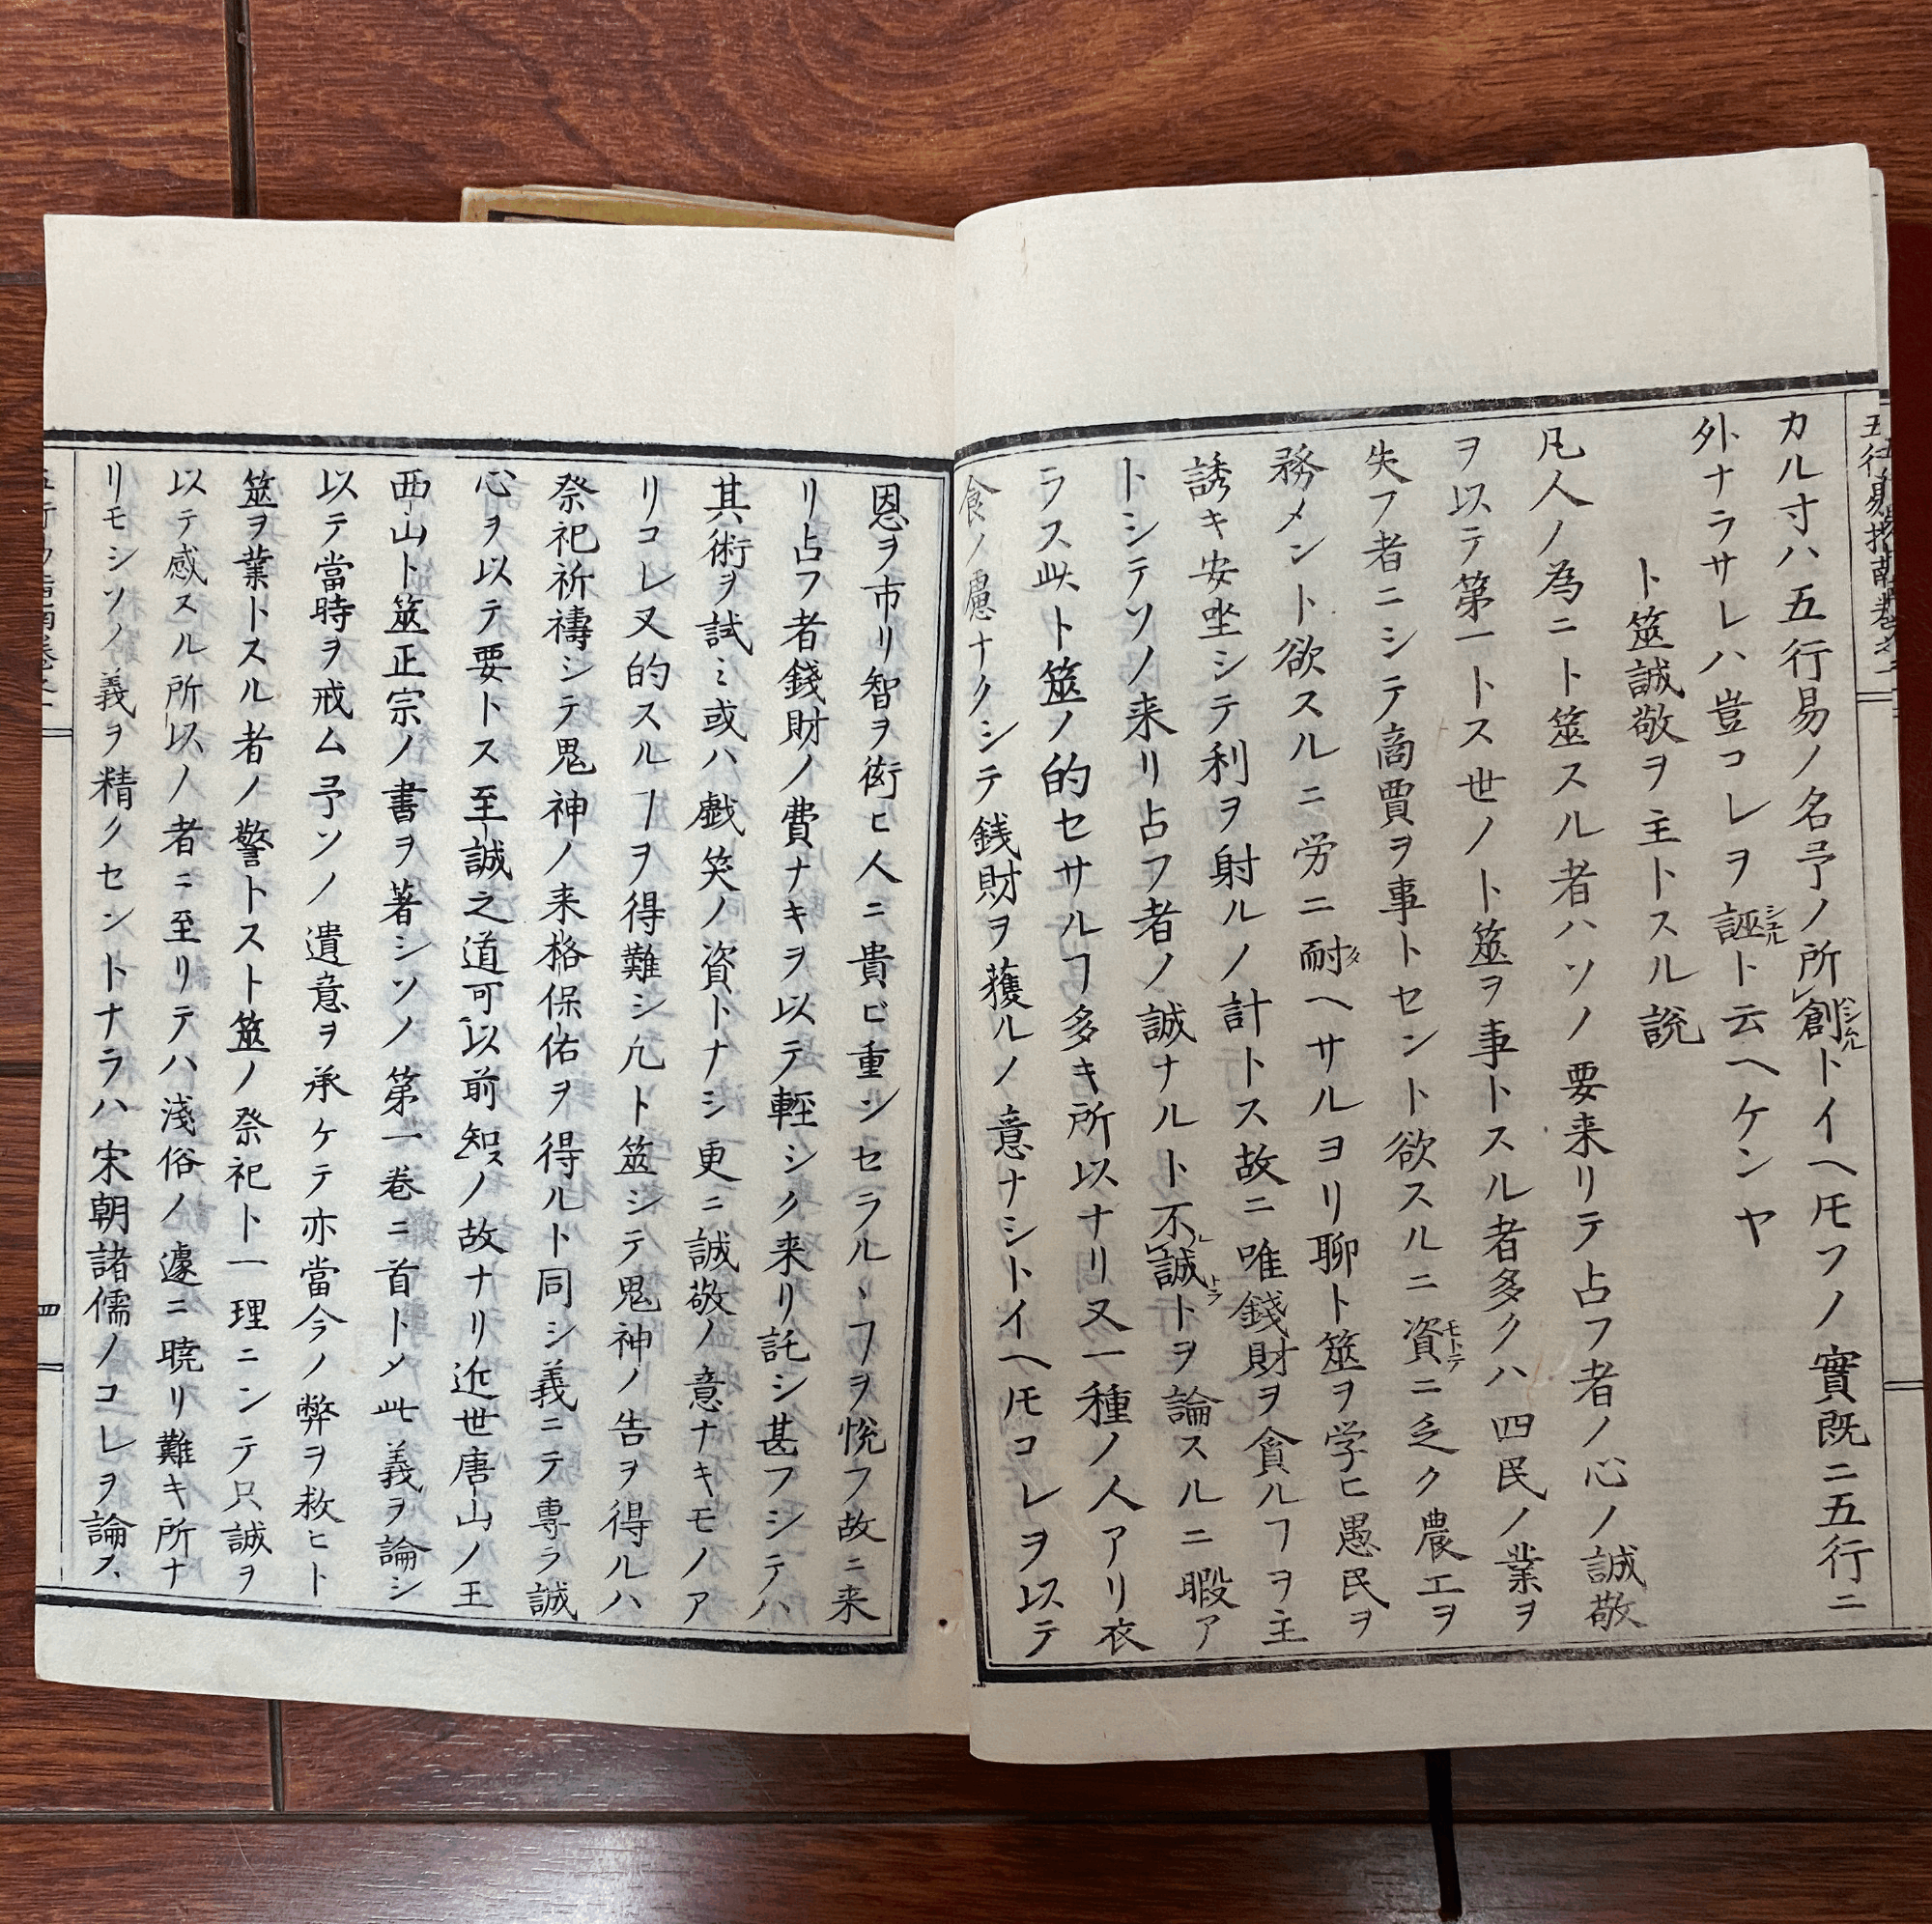 五行易指南卷之一
カル寸ハ五行易ノ名予ノ所創トイヘ𪜈フノ實既ニ五行ニ
外ナラサレハ豈コレヲ誣ト云ヘケンヤ
卜筮誠敬ヲ主トスル説
凡人ノ為ニ卜筮スル者ハソノ要来リテ占フ者ノ心ノ誠敬
ヲ以テ第一トス世ノ卜筮ヲ事トスル者多クハ四民ノ業ヲ
失フ者ニシテ商賈ヲ事トセント欲スルニ資ニ乏ク農工ヲ
務メント欲スルニ労ニ耐ヘサルヨリ聊卜筮ヲ学ヒ愚民ヲ
誘キ安坐シテ利ヲ射ルノ計トス故ニ唯錢財ヲ貪ルヿヲ主
トシテソノ来リ占フ者ノ誠ナルト不誠トヲ論スルニ暇ア
ラス此卜筮ノ的セサルヿ多キ所以ナリ又一種ノ人アリ衣
食ノ慮ナクシテ銭財ヲ獲ルノ意ナシトイヘ𪜈コレヲ以テ
恩ヲ市リ智ヲ衒ヒ人ニ貴ビ重ンセラルヽヿヲ悦フ故ニ来
リ占フ者錢財ノ費ナキヲ以テ輕シク来リ託シ甚フシテハ
其術ヲ試ミ或ハ戯笑ノ資トナシ更ニ誠敬ノ意ナキモノア
リコレ又的スルヿヲ得難シ凢卜筮シテ鬼神ノ告ヲ得ルハ
祭祀祈禱シテ鬼神ノ来格保佑ヲ得ルト同シ義ニテ專ラ誠
心ヲ以テ要トス至誠之道可以前知スノ故ナリ近世唐山ノ王
西山卜筮正宗ノ書ヲ著シソノ第一卷ニ首トメ此義ヲ論シ
以テ當時ヲ戒ム予ソノ遺意ヲ承ケテ亦當今ノ弊ヲ救ヒト
筮ヲ業トスル者ノ警トスト筮ノ祭祀ト一理ニンテ只誠ヲ
以テ感スル所以ノ者ニ至リテハ淺俗ノ遽ニ曉リ難キ所ナ
リモシソノ義ヲ精クセントナラハ宋朝諸儒ノコレヲ論ス
四